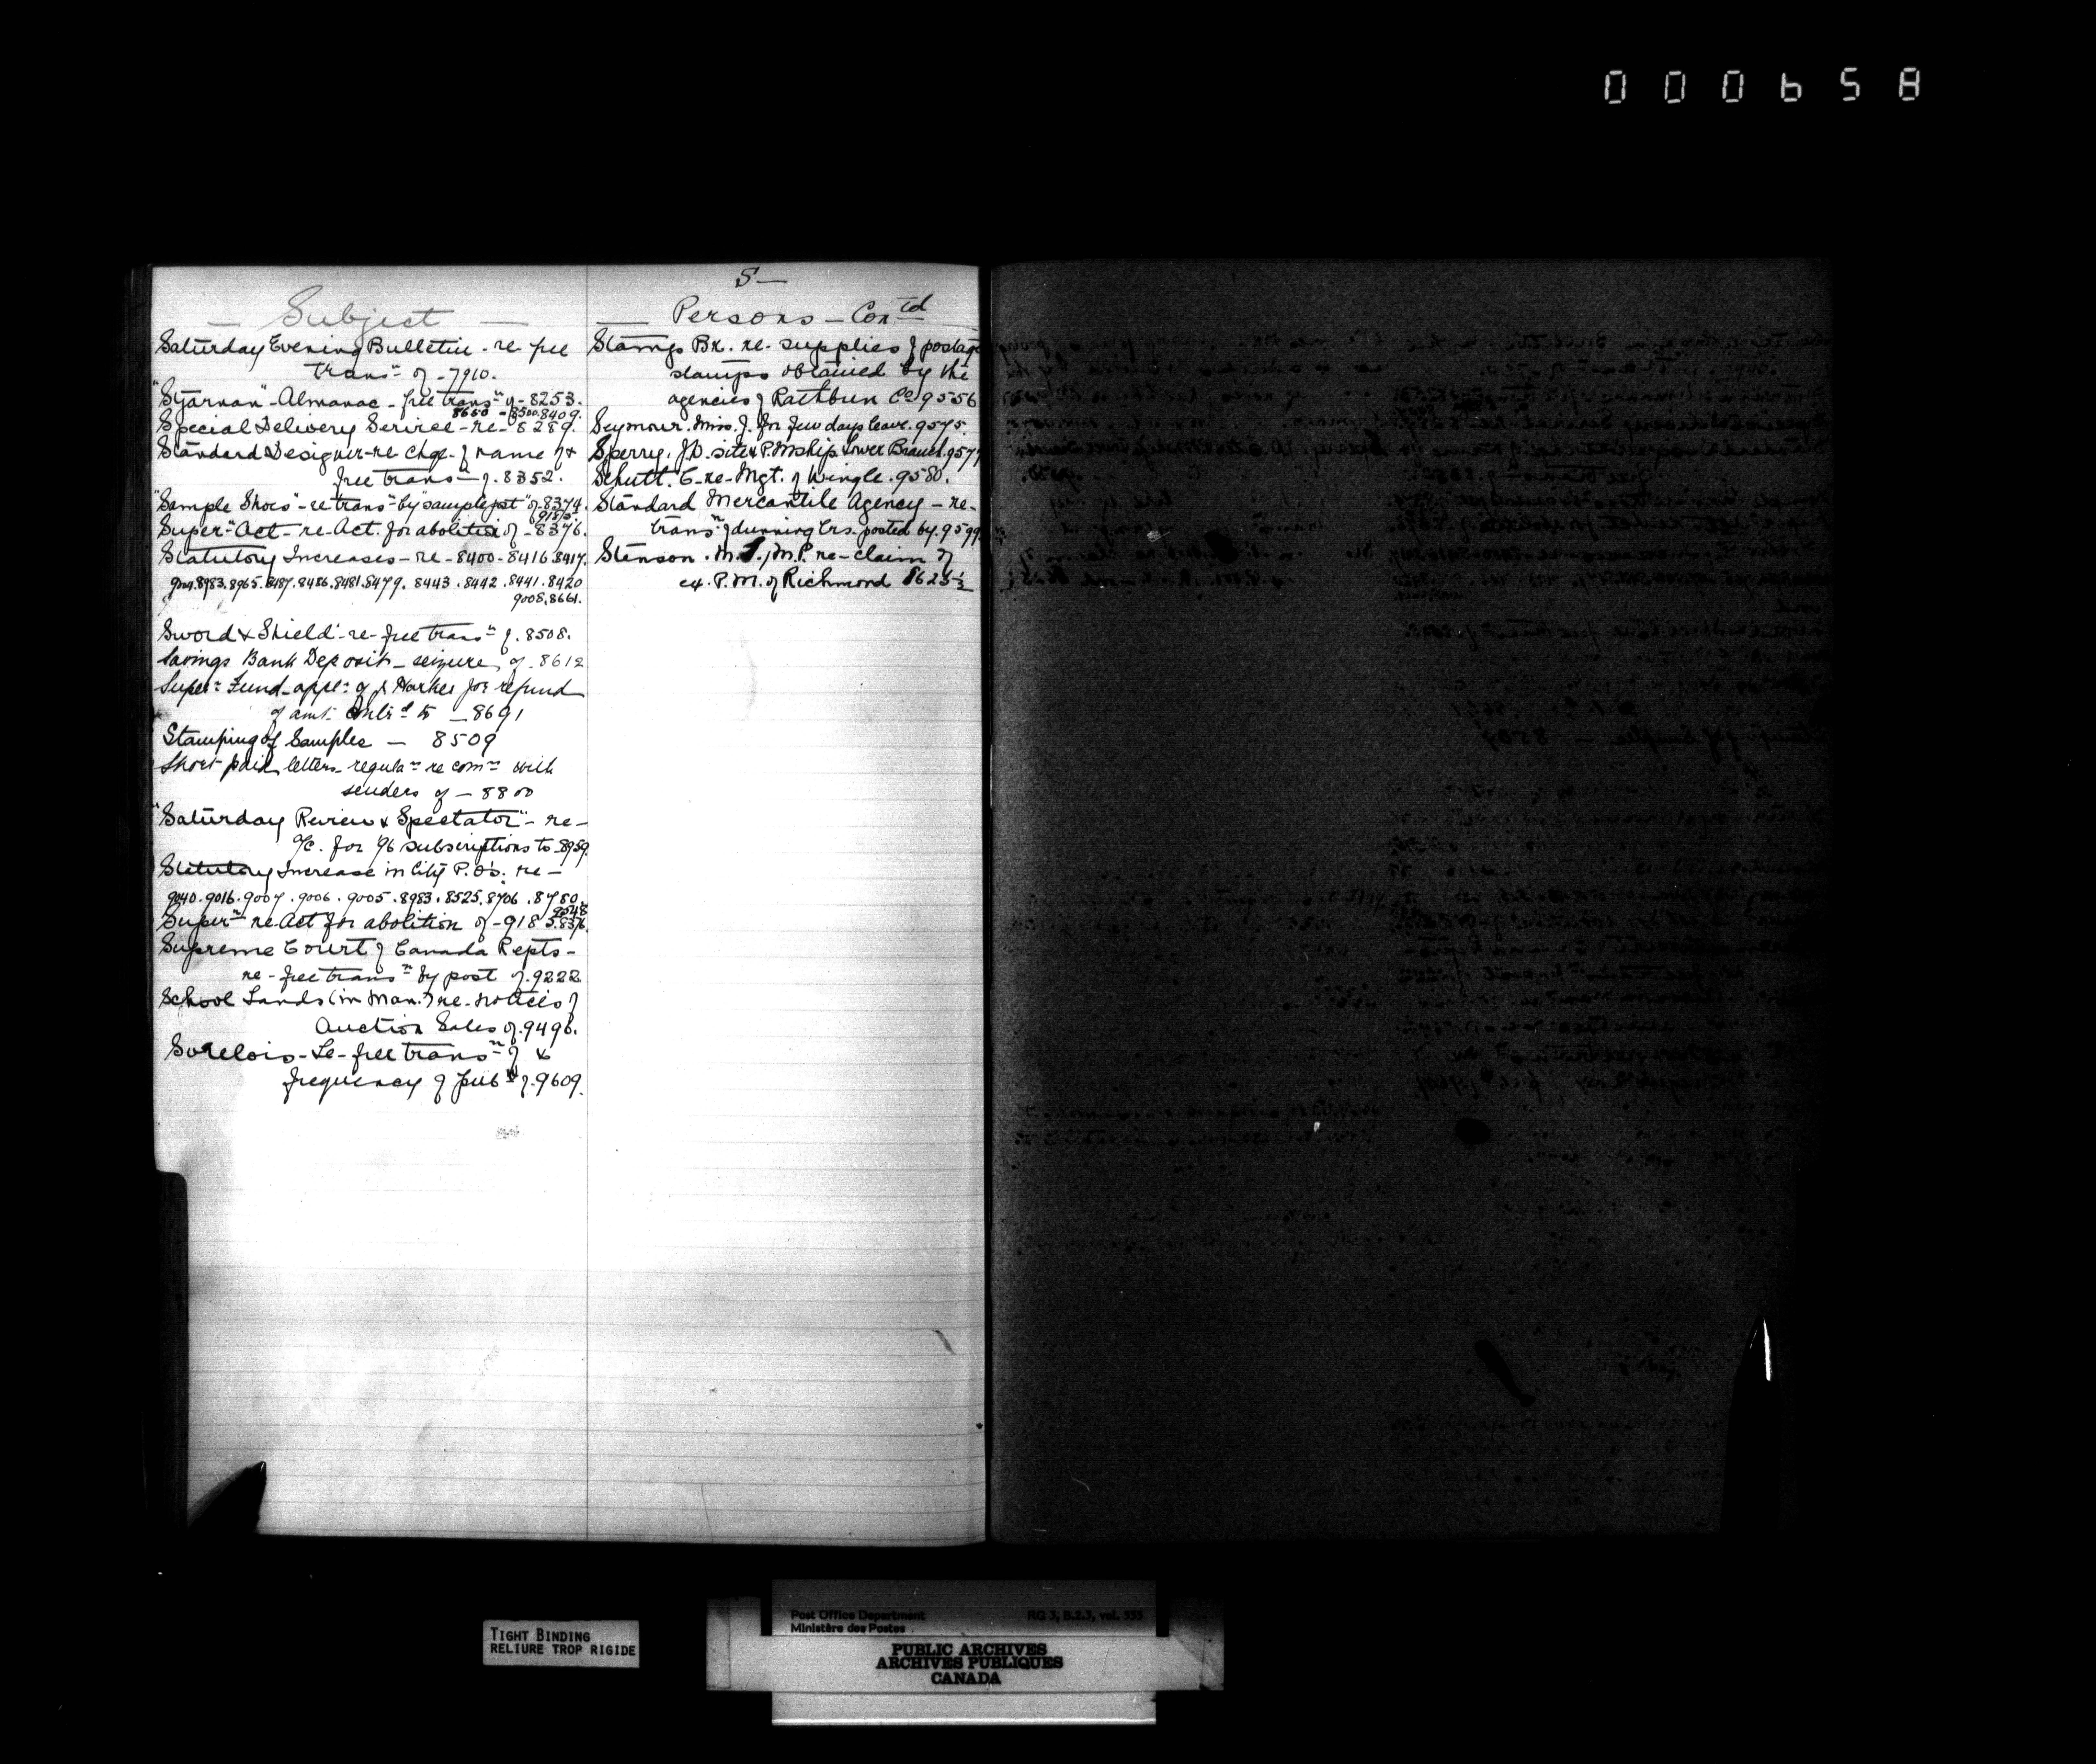 000658
S—
— Subject —
Saturday Evening Bulletin - re free
transn of - 7910.
"Stjarnan" - Almanac - free transn of - 8253.
8650 - 8500.8409.
Special Delivery Service - re - 8289.
Standard Designer - re chge. of name of &
free transn of. 8352.
"Sample Shoes" - re transn by "sample post" of. 8374.
9185
Supern Act - re - Act. for abolition of - 8376.
Statutory Increases - re - 8400 - 8416.8417.
8983.8965.8487.8486.8481.8479. 8443 . 8442 . 8441 . 8420
9008.8661.
Sword & Shield - re - free transn of. 8508.
Savings Bank Deposit - seizure of - 8612
Supern Fund - appln of J Harkes for refund
of amt. to — 8691
Stamping of Samples — 8509
Short paid letters - regulan re comn with
senders of — 8800
"Saturday Review & Spectator" - re -
a/c. for '96 subscriptions to - 8959.
Statutory Increase in City P.O's. re -
9040 . 9016 . 9007 . 9006 . 9005 . 8983 . 8525. 8706 . 8780.
9548
Supern re Act for abolition of - 9185.8376.
Supreme Court of Canada Repts -
re - free transn by post of. 9222
School Lands (in Man.) re. notices of
Auction Sales of. 9496.
Sorelois - Le - free transn of &
frequency of pubn of. 9609.
— Persons — Contd
Stamps Br. re. supplies of postage
stamps obtained by the
agencies of Rathbun Co 9556
Seymour. Miss. J. for few days leave. 9575.
Sperry. J.D. site & P.Mship Lower Branch. 957
Schutt. C - re - Mgt. of Wingle. 9580.
Standard Mercantile Agency — re -
transn of dunning lrs. posted by. 9599
Stenson . M. T., M.P. re - claim of
ex. P.M. of Richmond 8625½
TIGHT BINDING
RELIURE TROP RIGIDE
Post Office Department RG 3, B.2.3, vol. 555
Ministère des Postes
PUBLIC ARCHIVES
ARCHIVES PUBLIQUES
CANADA